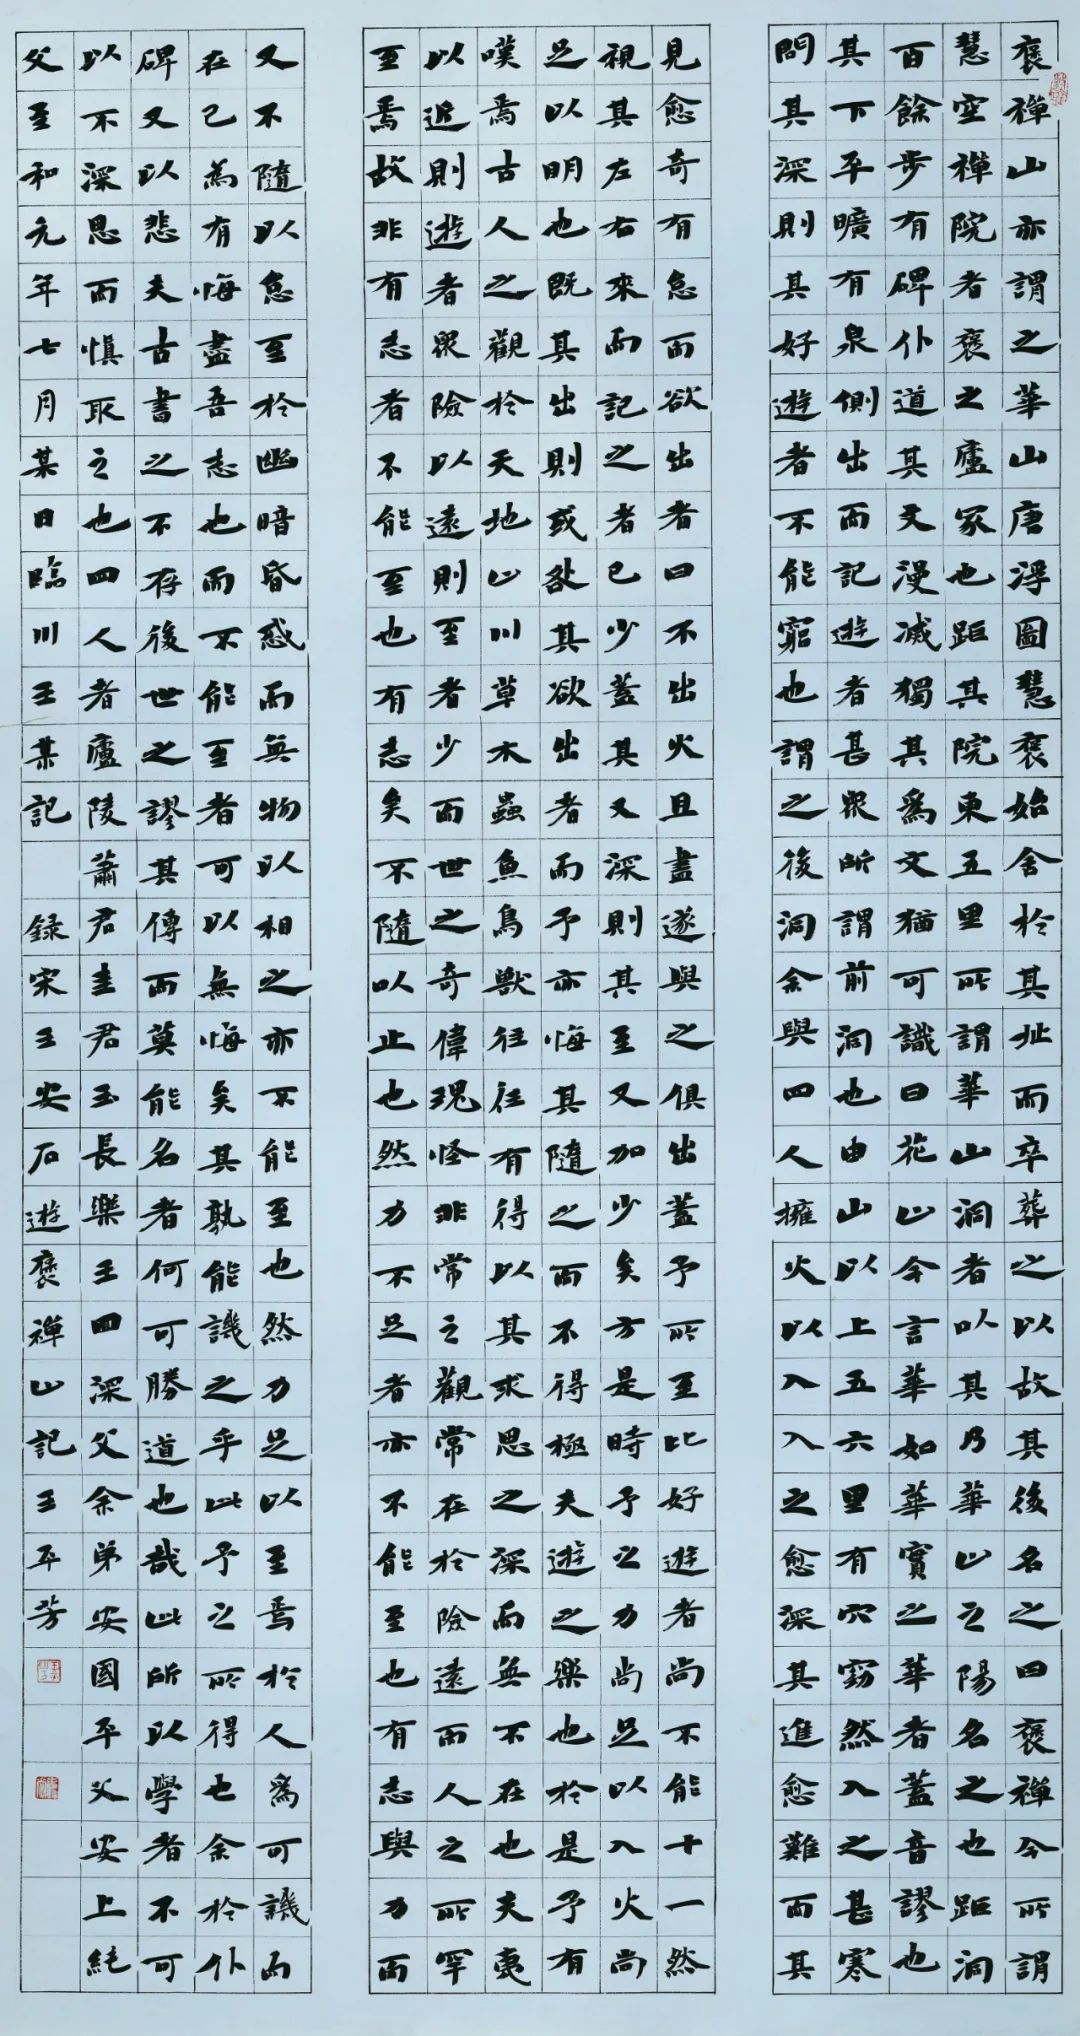 褒禪山亦謂之華山唐浮圖慧褒始舍於其址而卒葬之以故其後名之曰褒禪今所謂
慧空禪院者褒之廬冢也距其院東五里所謂華山洞者以其乃華山之陽名之也距洞
百餘步有碑仆道其文漫滅獨其為文猶可識曰花山今言華如華實之華者蓋音謬也
其下平曠有泉側出而記遊者甚眾所謂前洞也由山以上五六里有穴窈然入之甚寒
問其深則其好遊者不能窮也謂之後洞余與四人擁火以入入之愈深其進愈難而其
見愈奇有怠而欲出者曰不出火且盡遂與之俱出蓋予所至比好遊者尚不能十一然
視其左右來而記之者已少蓋其又深則其至又加少矣方是時予之力尚足以入火尚
足以明也既其出則或咎其欲出者而予亦悔其隨之而不得極夫遊之樂也於是予有
嘆焉古人之觀於天地山川草木蟲魚鳥獸往往有得以其求思之深而無不在也夫夷
以近則遊者眾險以遠則至者少而世之奇偉瑰怪非常之觀常在於險遠而人之所罕
至焉故非有志者不能至也有志矣不隨以止也然力不足者亦不能至也有志與力而
又不隨以怠至於幽暗昏惑而無物以相之亦不能至也然力足以至焉於人為可譏而
在己為有悔盡吾志也而不能至者可以無悔矣其孰能譏之乎此予之所得也余於仆
碑又以悲夫古書之不存後世之謬其傳而莫能名者何可勝道也哉此所以學者不可
以不深思而慎取之也四人者廬陵蕭君圭君玉長樂王回深父余弟安國平父安上純
父至和元年七月某日臨川王某記 錄宋王安石遊褒禪山記王平芳